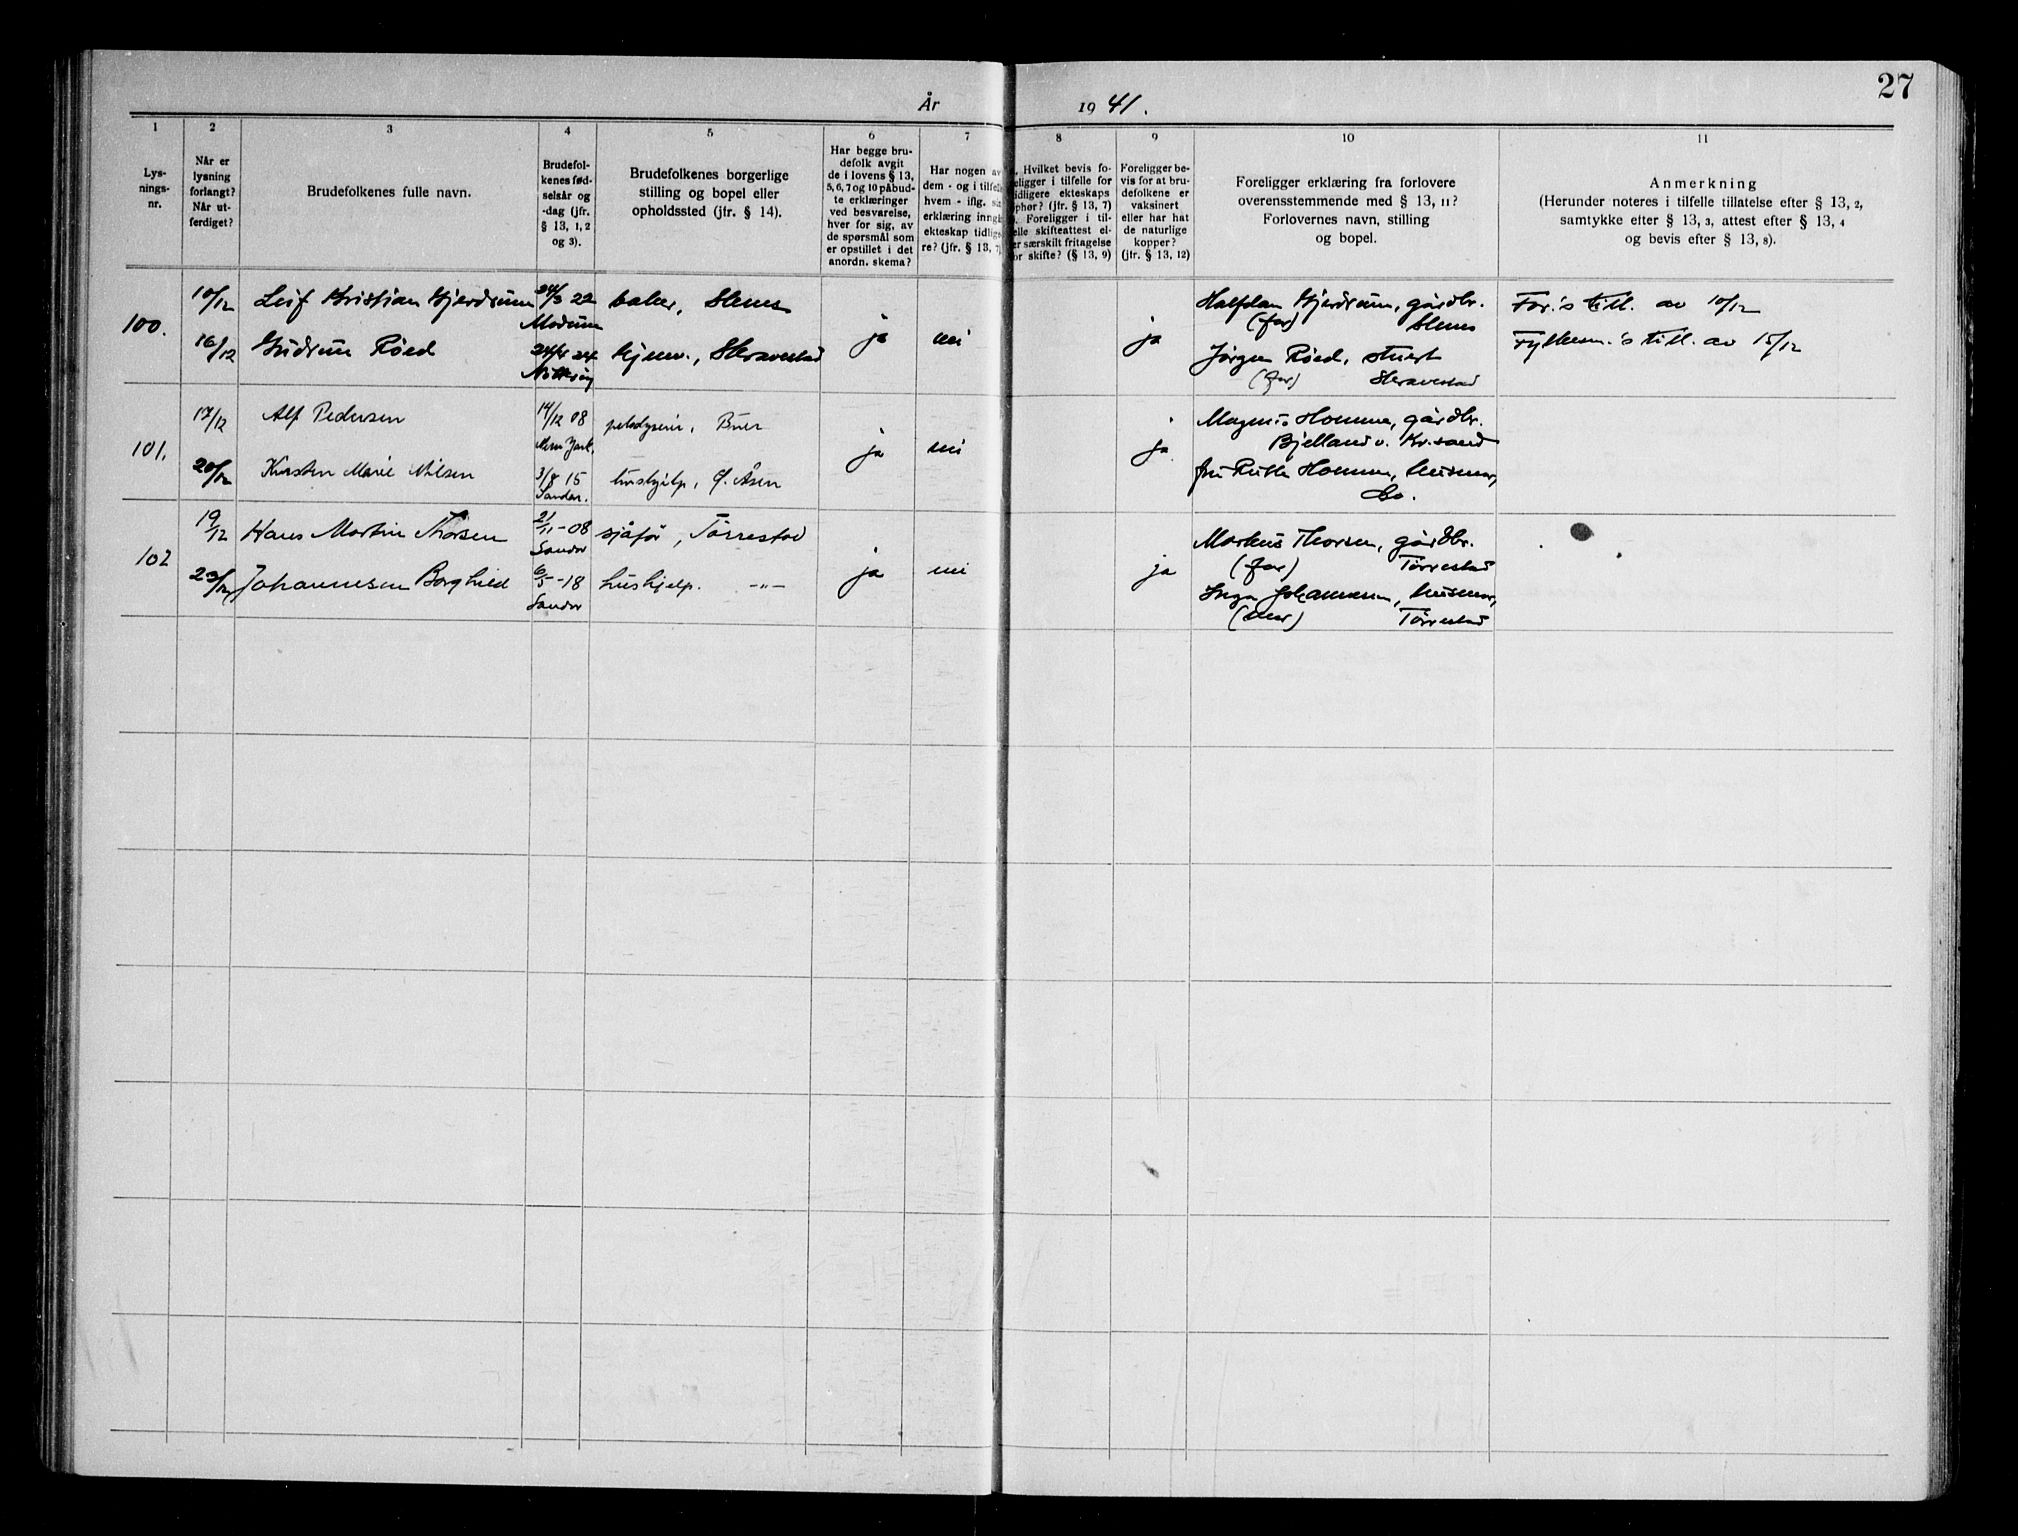 27
År 1941.
1 2 3 4 5 6 7 8 9 10 11
Lys-
nings-
nr.
Når er
lysning
forlangt?
Når ut-
ferdiget?
Brudefolkenes fulle navn.
Brudefol-
kenes fød-
selsår og
-dag (jfr.
§ 13, 1, 2
og 3).
Brudefolkenes borgerlige
stilling og bopel eller
opholdssted (jfr. § 14).
Har begge bru-
defolk avgit
de i lovens § 13,
5, 6, 7 og 10 påbud-
te erklæringer
ved besvarelse,
hver for sig, av
de spørsmål som
er opstillet i det
anordn. skema?
Har nogen av
dem - og i tilfelle
hvem - iflg. sin
erklæring inngått
ekteskap tidlige-
re? (jfr. § 13, 7)
Hvilket bevis fo-
religger i tilfelle for
tidligere ekteskaps
ophør? (jfr. § 13, 7)
Foreligger i til-
felle skifteattest el-
ler særskilt fritagelse
for skifte? (§ 13, 9)
Foreligger be-
vis for at bru-
defolkene er
vaksinert
eller har hat
de naturlige
kopper?
(jfr. § 13, 12)
Foreligger erklæring fra forlovere
overensstemmende med § 13, 11?
Forlovernes navn, stilling
og bopel.
Anmerkning
(Herunder noteres i tilfelle tillatelse efter § 13, 2,
samtykke efter § 13, 3, attest efter § 13, 4
og bevis efter § 13, 8).
100.
10/12 Leif Kristian Gjerdrum 24/3 22 baker,
Modum
16/12 Gudrun Røed 24/4 24 hjemv., Skravestad
Nøtterøy
ja nei ja
Halfdan Gjerdrum, gårdbr.
(far)
Jørgen Røed, stuert
(far) Skravestad
For.'s till. av 10/12
Fylkesm.'s till. av 15/12
101.
17/12 Alf Pedersen 14/12 08 pelsdyreier,
New York.
20/12 Kirsten Marie Nilsen 3/8 15 hushjelp, Ø. Åsen
Sandar.
ja nei ja
Magnus Homme, gårdbr.
Bjelland v. Kr.sand
fru Ruth Homme, husmor,
do.
102
19/12 Hans Martin Thorsen 21/11-08 sjåfør, Tørrestad
Sandar
23/12 Johannesen Borghild 6/5-18 hushjelp. -"-
Sandar
ja nei ja
Markus Thorsen, gårdbr.
(far) Tørrestad
Inga Johannesen, husmor,
(mor) Tørrestad